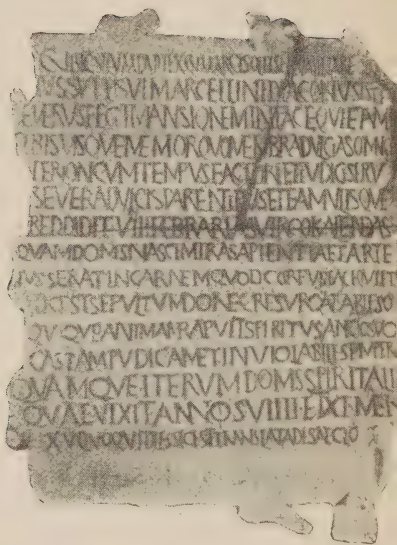 CVBICVLVM DVPLEX CVM ARCISOLIIS ET LVMINARE
IVSSV PP SVI MARCELLINI DIACONVS ISTE
SEVERVS FECIT MANSIONEM IN PACE QVIETAM
SIBI SVISQVE MEMOR QVO MEMBRA DVLCIA SOMNO
PER LONGVM TEMPVS FACTORI ET IVDICI SERV
SEVERA DVLCIS PARENTIBVS ET FAMVLISQVE
REDDIDIT VIII FEBRARIAS VIRGO KALENDAS
QVAM DOMS NASCI MIRA SAPIENTIA ET ARTE
IVSSERAT IN CARNEM QVOD CORPVS PACE QVIET
HIC EST SEPVLTVM DONEC RESVRGAT AB IPSO
QVIQVE ANIMAM RAPVIT SPIRITV SANCTO SVO
CASTAM PVDICAM ET INVIOLABILE SEMPER
QVAMQVE ITERVM DOMS SPIRITALI
QVAE VIXIT ANNOS VIIII ET XI MEN
XV QVOQVE DIES SIC EST TRANSLATA DE SAECLO